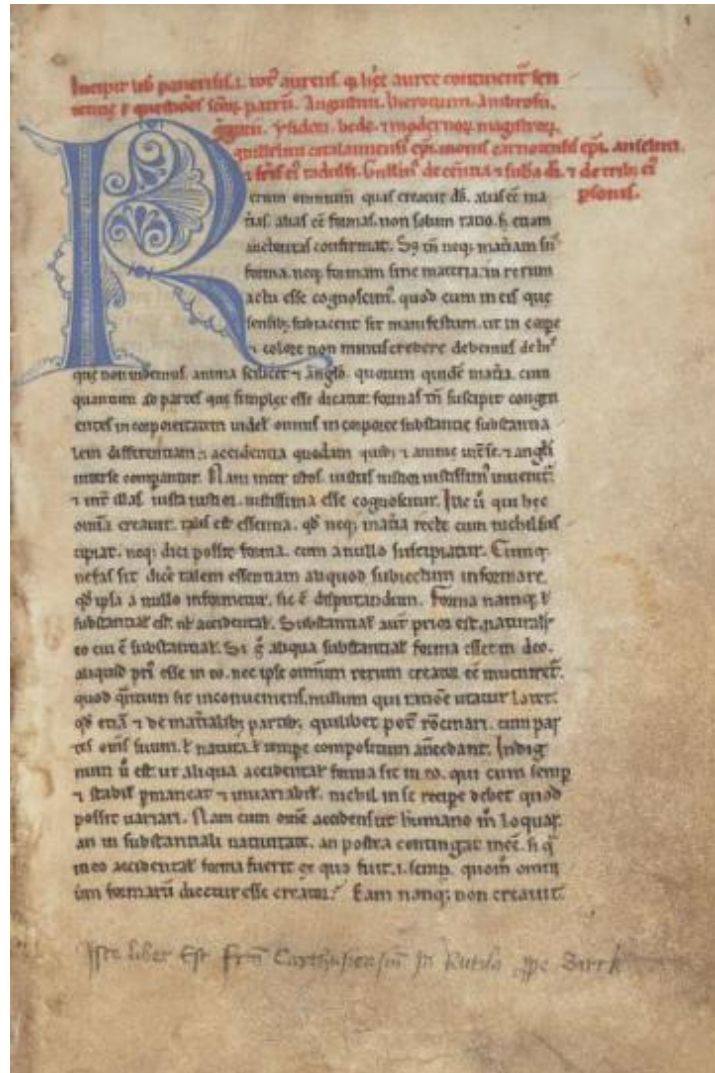 Incipit lib pancrisis. i. tot' aureus. q' hic auree continent' sen
tentie & questiões scōrū patrū. Augustini. hieronimi. Ambrosii.
Gregorii. ysidori. bede. ⁊ modernorū magistrorū.
Guillelmi catalaunensis epī. ivonis carnotensis epī. anselmi.
⁊ fr̄is ei' radulfi. Guillm' de eēntia ⁊ suba dī. ⁊ de trib; ei'
psonis.
Rerum omnium quas creavit dš. alias eē ma
t̄ias. alias eē formas. non solum ratio. s; etiam
auctoritas confirmat. S; tn̄ neq; mat̄iam sin̄
forma. neq; formam sine materia. in rerum
actu esse cognoscim'. quod cum in eis que
sensib; subiacent sit manifestum. ut in corpe
⁊ colore non minus credere debemus de his
que non videmus. anima scilicet ⁊ anglō. quorum quidē mat̄ia. cum
quantum ad partes que simplex esse dicatur formas tn̄ suscipit
entes in corporeitatem
lem differentiam ⁊ accidentia quedam quib; ⁊ anime int̄ se. ⁊ angli
inter se comparantur. Nam inter istos. iustus iustior iustissim' invenit'.
⁊ int̄ illas. iusta iustior. iustissima esse cognoscitur. Ille ū qui hec
omīa creavit. talis est essentia. qd̄ neq; mat̄ia recte cum nichil sus
cipiat. neq; dici possit forma. cum a nullo suscipiatur. Cumq;
nefas sit dicē talem essentiam aliquod subiectum informare.
qd̄ ipsa a nullo informetur. sic ē disputandum. Forma namq; ł
substantial' est. ł accidental'. Substantial' aut̄ prior est. naturalit̄
eo cui ē substantial'. Si ḡ aliqua substantial' forma esset in deo.
aliquid pri' esse in eo. nec ipse omnium rerum creator eē inveniret'.
quod q̄ntum sit inconveniens. nullum qui ratiōe utatur latet.
qd̄ etiā ⁊ de mat̄ialib; partib; quilibet pot̄ rōcinari. cum par
tes om̄s suum. ł natura. ł tempe compositum antecedant. Indig
num ū est ut aliqua accidental' forma sit in eo. qui cum semp
⁊ stabil' pmaneat ⁊ invariabil'. nichil in se recipe debet quod
possit variari. Nam cum omē accidens ut humano m̄ loquar.
an in substantiali nativitate. an postea contingat in eē. si q'
in eo accidental' forma fuerit ex quo fuit. i. semp. quom̄ omiū
formarū dicetur esse creator? Eam nanq; non creavit.
Iste liber Est frm̄ Carthusiensiū In Rutila ppe Sirck